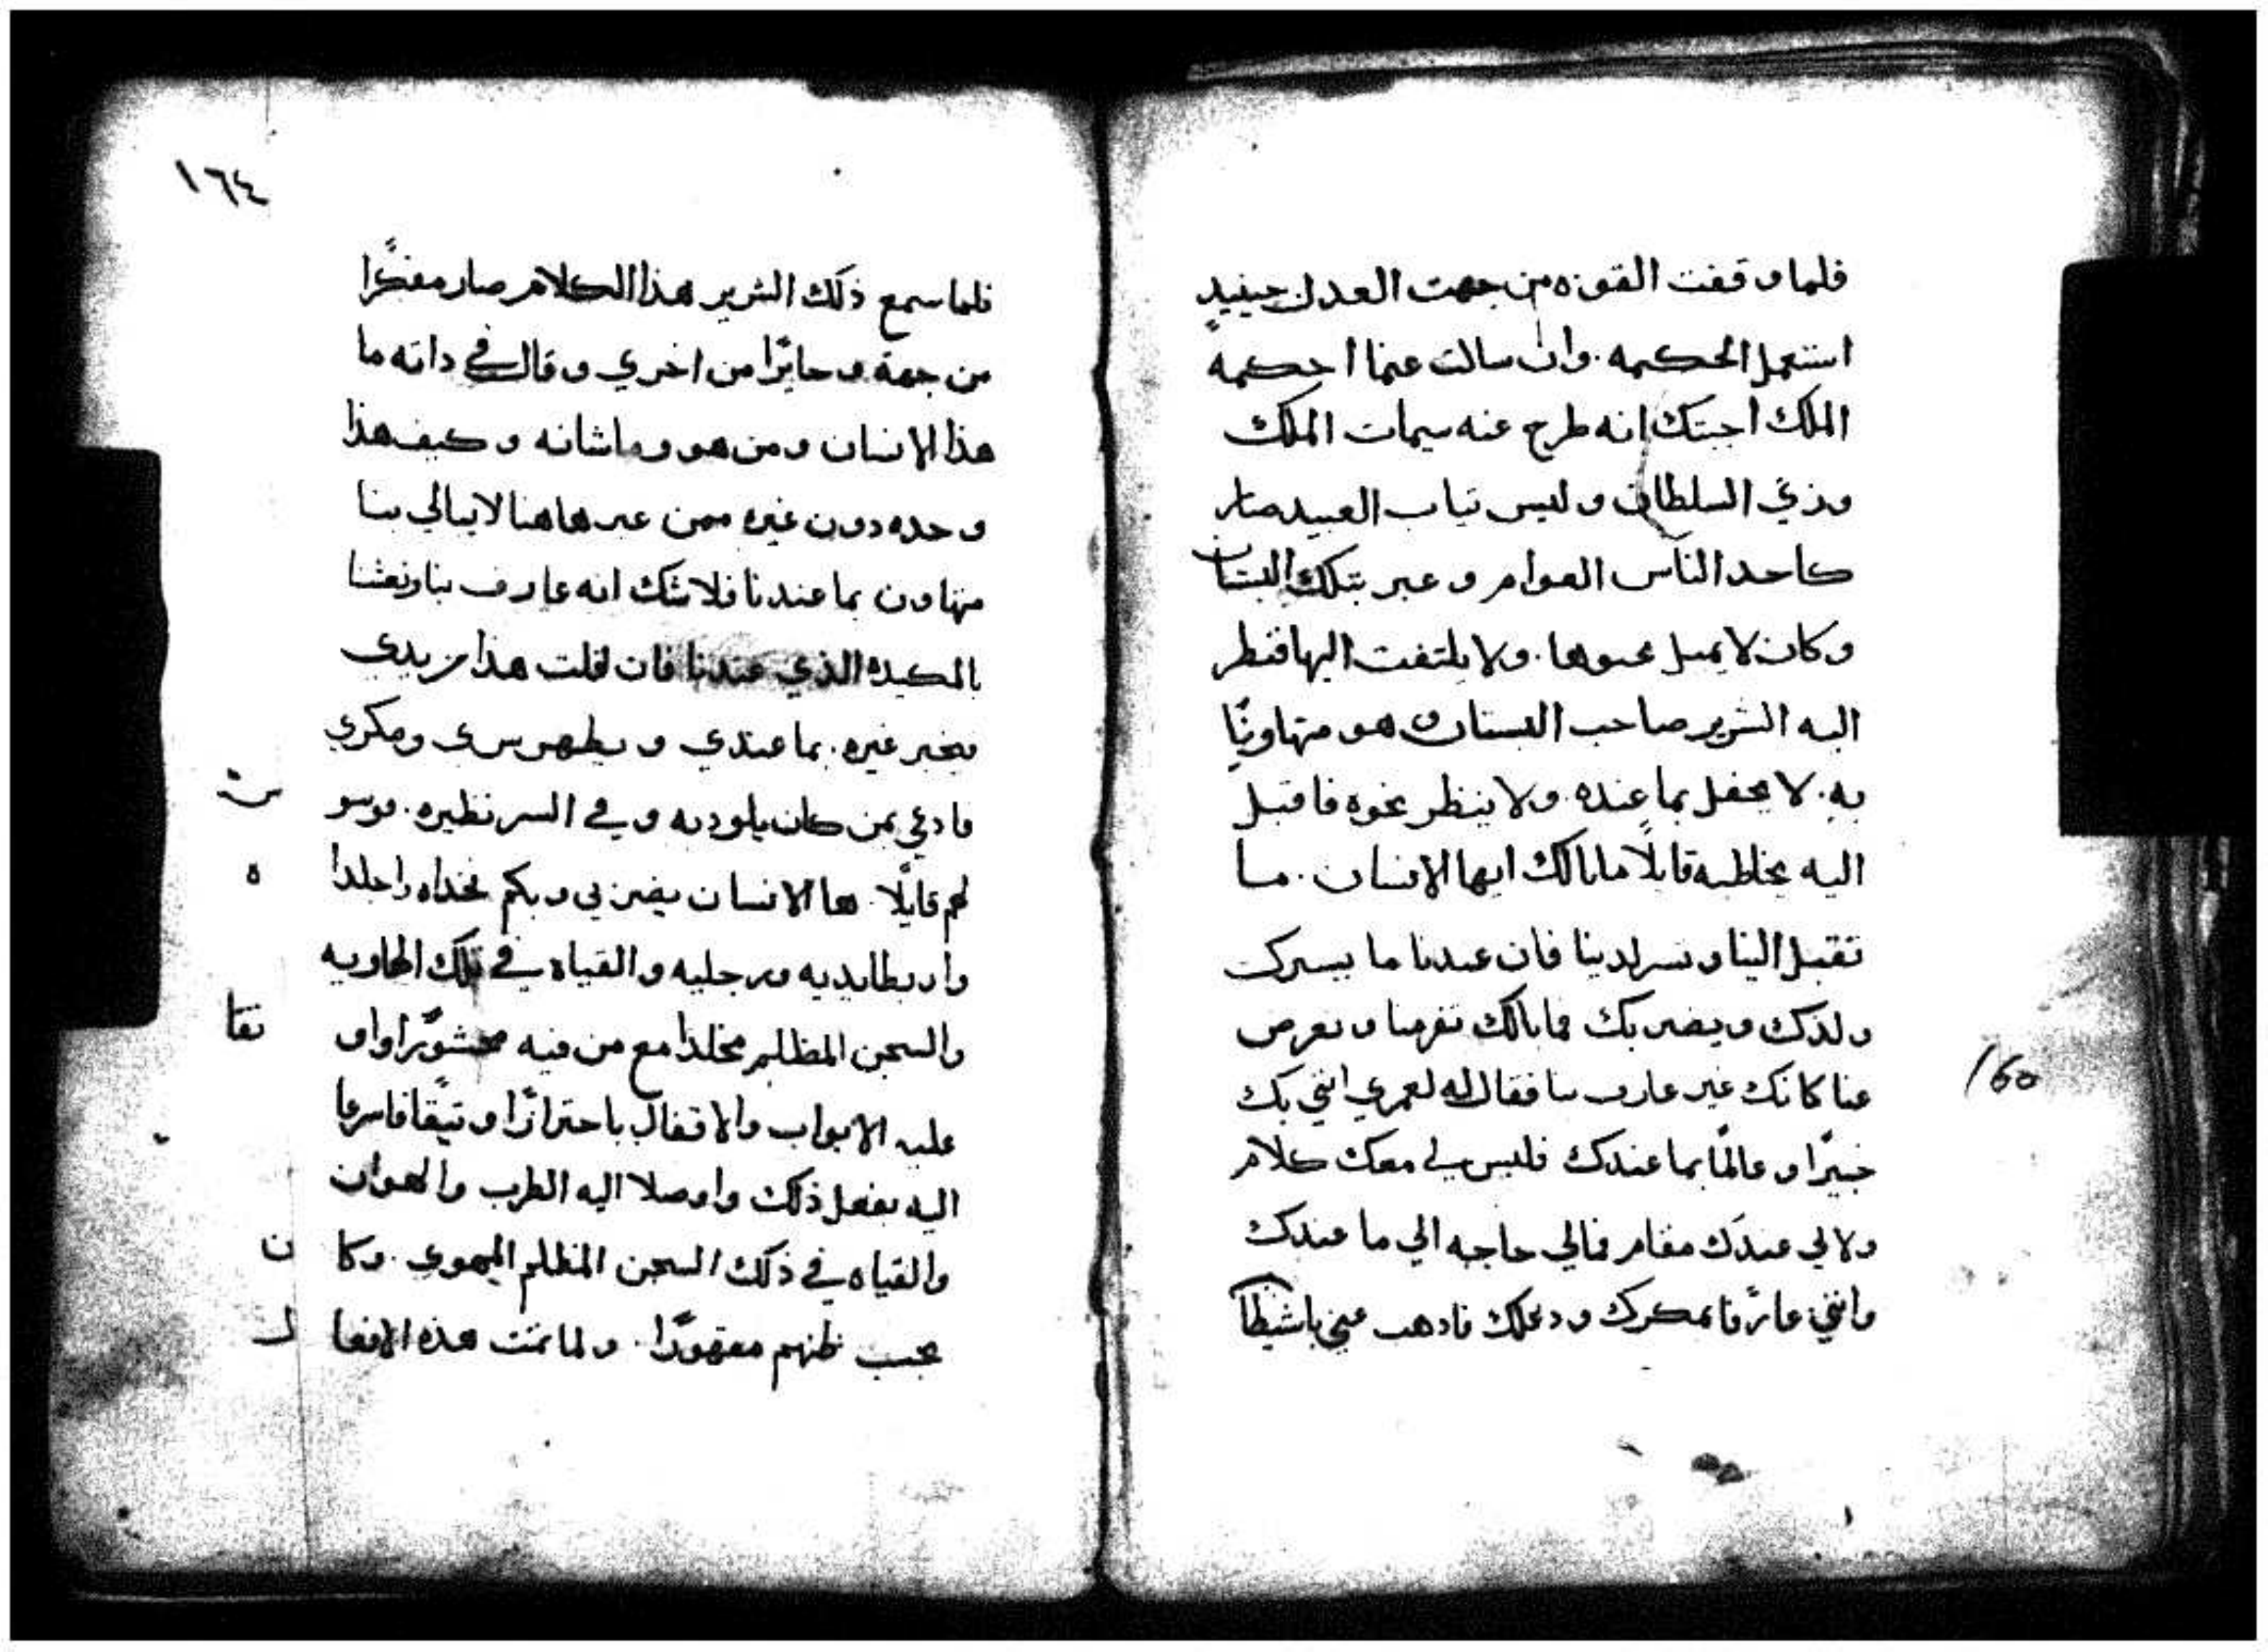 فلما وقفت القوه من جهت العدل حينيدٍ
استعمل الحكيمه. وان سالت عنما احكيمه
الملك اجبتك انه طرح عنه سيمات الملك
وزي السلطان ولبس تياب العبيد صار
كاحد الناس العوام وعبر بتلك البستان
وكان لا يميل نحوها. ولا يلتفت اليها فنظر
اليه الشرير صاحب البستان وهو متهاونًا
به. لا يحفل بما عنده ولا ينظر نحوه فاقبل
اليه يخاطبه قايلاً ما بالك ايها الانسان. ما
تقبل الينا وتسر لدينا فان عندنا ما يسرك
ولدك ويضر بك فما بالك تفر منا وتعرض
عنا كانك غير عارف بنا فقال له لعمري انني بك
خبيرًا وعالمًا بما عندك فليس لي معك كلام
ولا لي عندك مقام فمالي حاجه الي ما عندك
وانني عارفًا بمكرك ودغلك فادهب عني يا شيطا
160
١٦٤
فلما سمع ذلك الشرير هذا الكلام صار مفكرًا
من جهة وحايرًا من اخري وقال في داته ما
هذا الانسان ومن هو وما شانه وكيف هذا
وحده دون غيره ممن عبر هاهنا لا يبالي بنا
متهاون بما عندنا فلا شك انه عارف بنا وبغشنا
بالمكيده الذي عندنا فان فلت هذا من يدي
يخبر غيره. بما عندي ويظهر سري ومكري
فادعي بمن كان يلود به وفي السر نظيره. موسو س
لهم قايلًا. هذا الانسان يضر بي وبكم فخداه واجلدا ه
واربطا يديه ورجليه والقياه في تلك الهاويه
والسجن المظلم مخلدا مع من فيه محشورًا واو ثقا
عليه الابواب والاقفال باحترازًا وتيقًا فاسرعا
اليه بفعل ذلك واوصلا اليه الضرب والهوان
والقياه في ذلك السجن المظلم المهوي. وكا ن
بحسب ظنهم مقهورًا. ولما تمت هذه الافعا ل